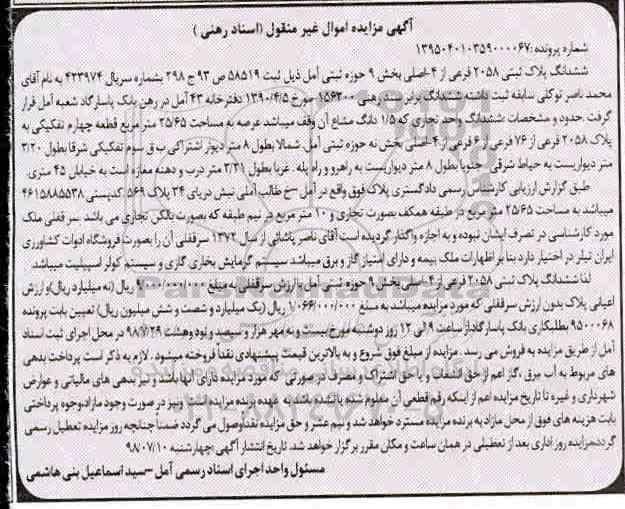 آگهی مزایده اموال غیر منقول (اسناد رهنی)
شماره پرونده: ۱۳۹۵۰۴۰۱۰۳۵۹۰۰۰۰۶۷
ششدانگ پلاک ثبتی ۲۰۵۸ فرعی از ۴-اصلی بخش ۹ حوزه ثبتی آمل ذیل ثبت ۵۸۵۱۹ ص ۹۳ ج ۲۹۸ بشماره سریال ۴۲۳۹۷۴ به نام آقای
محمد ناصر توکلی سابقه ثبت داشته ششدانگ برابر سند رهنی ۱۵۶۳۰۰ -مورخ ۱۳۹۰/۴/۵ دفترخانه ۴۳ آمل در رهن بانک پاسارگاد شعبه آمل قرار
گرفت .حدود و مشخصات :ششدانگ واحد تجاری که ۱/۵ دانگ مشاع آن وقف میباشد عرصه به مساحت ۲۵/۶۵ متر مربع قطعه چهارم تفکیکی به
پلاک ۲۰۵۸ فرعی از ۷۶ فرعی از ۶ فرعی از ۴-اصلی بخش نه حوزه ثبتی آمل. شمالا بطول ۸ متر دیوار اشتراکی ب ق سوم تفکیکی شرقا بطول ۳/۲۰
متر دیواریست به حیاط شرقی - جنوبا بطول ۸ متر دیواریست به راهرو و راه پله. غربا بطول ۳/۲۱ متر درب و دهنه مغازه است به خیابان ۴۵ متری.
طبق گزارش ارزیابی کارشناس رسمی دادگستری پلاک فوق واقع در آمل -خ طالب آملی نبش دریای ۳۴ پلاک ۵۶۹ کدپستی ۴۶۱۵۸۸۵۵۳۸
میباشد به مساحت ۲۵/۶۵ متر مربع در طبقه همکف بصورت تجاری و ۱۰ متر مربع در نیم طبقه که بصورت بالکن تجاری می باشد .سرقفلی ملک
مورد کارشناسی در تصرف ایشان نبوده و به اجاره واگذار گردیده است آقای ناصر پاشائی از سال ۱۳۷۲ سرقفلی آن را بصورت فروشگاه ادوات کشاورزی
ایران تیلر در اختیار دارد بنا بر اظهارات ملک بیمه و دارای امتیاز گاز و برق میباشد سیستم گرمایش بخاری گازی و سیستم کولر اسپیلیت میباشد.
لذا ششدانگ پلاک ثبتی ۲۰۵۸ فرعی از ۴-اصلی بخش ۹ حوزه ثبتی آمل با ارزش سرقفلی به مبلغ ۹/۰۰۰/۰۰۰/۰۰۰ ریال (نه میلیارد ریال)و ارزش
اعیانی پلاک بدون ارزش سرقفلی که مورد مزایده میباشد به مبلغ ۱/۰۶۶/۰۰۰/۰۰۰ ریال (یک میلیارد و شصت و شش میلیون ریال) تعیین بابت پرونده
۹۵۰۰۰۶۸ بطلبکاری بانک پاسارگاداز ساعت ۹ الی ۱۲ روز دوشنبه مورخ بیست و نه مهر هزار و سیصد و نود وهشت ۹۸/۷/۲۹ در محل اجرای ثبت اسناد
آمل از طریق مزایده به فروش می رسد . مزایده از مبلغ فوق شروع و به بالاترین قیمت پیشنهادی نقدا فروخته میشود . لازم به ذکر است پرداخت بدهی
های مربوط به آب برق ،گاز اعم از حق انشعاب و یا حق اشتراک و مصرف در صورتی که مورد مزایده دارای آنها باشد و نیز بدهی های مالیاتی و عوارض
شهرداری و غیره تا تاریخ مزایده اعم از اینکه رقم قطعی آن معلوم شده یا نشده باشد به عهده برنده مزایده است ونیز در صورت وجود مازاد،وجوه پرداختی
بابت هزینه های فوق از محل مازاد به برنده مزایده مسترد خواهد شد و نیم عشر و حق مزایده نقداوصول می گردد ضمنا چنانچه روز مزایده تعطیل رسمی
گرددمزایده روز اداری بعد از تعطیلی در همان ساعت و مکان مقرر برگزار خواهد شد. تاریخ انتشار آگهی :چهارشنبه ۹۸/۰۷/۱۰
مسئول واحد اجرای اسناد رسمی آمل -سید اسماعیل بنی هاشمی